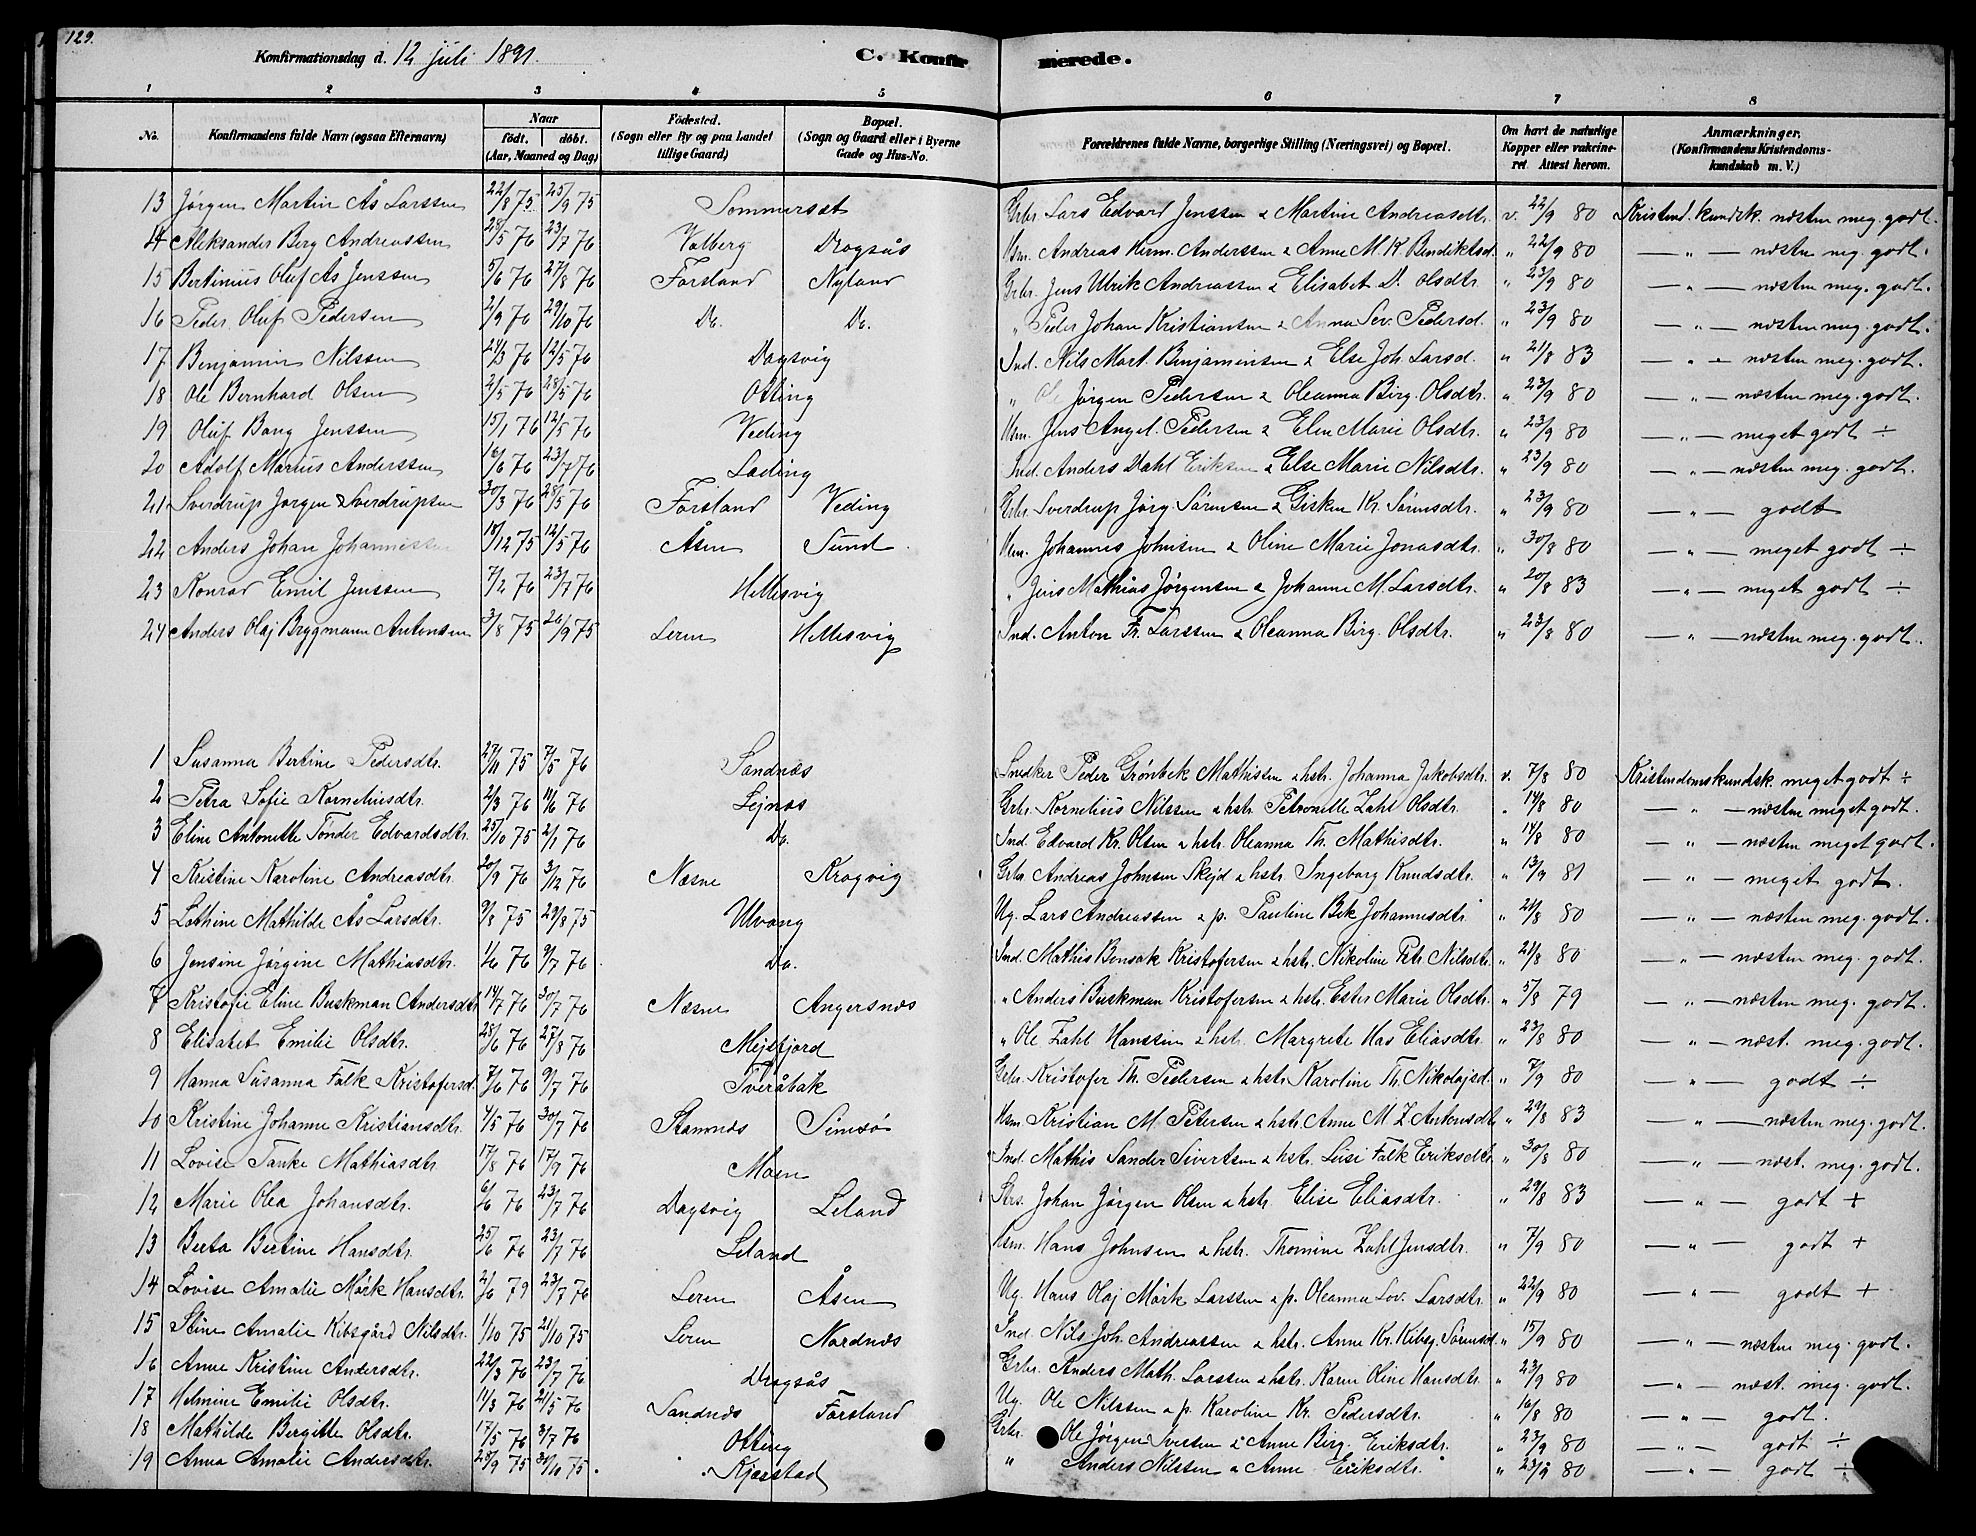 129.
Konfirmationsdag d. 12 juli 1891.
C. Konfirmerede.
1 2 3 4 5 6 7 8
No. Konfirmandens fulde Navn (ogsaa Efternavn) Naar født. døbt. (Aar, Maaned og Dag) Fødested. (Sogn eller By og paa Landet tillige Gaard) Bopæl. (Sogn og Gaard eller i Byerne Gade og Hus-No. Forældrenes fulde Navne, borgerlige Stilling (Næringsvei) og Bopæl. Om havt de naturlige Kopper eller vakcineret. Attest herom. Anmærkninger. (Konfirmandens Kristendomskundskab m. V.)
13 Jørgen Martin Ås Larssen 22/8 75 25/9 75 Sommerset Grbr. Lars Edvard Jenssen & Martine Andreasdtr. v. 22/9 80 Kristend. kundsk. næsten meg. godt.
14 Aleksander Berg Andreassen 28/5 76 23/7 76 Valberg Dragsås Hsm. Andreas Herm. Anderssen & Anne M. K. Bendiktsd. " 22/9 80 — " — næsten meg. godt.
15 Bertinius Oluf Ås Jenssen 5/6 76 27/8 76 Forsland Nyland Grbr. Jens Ulrik Andreassen & Elisabet D. Olsdtr. " 23/9 80 — " — næsten meg. godt.
16 Peder Oluf Pedersen 2/9 76 29/10 76 Do. Do. " Peder Johan Kristiansen & Anna Sev. Pedersd. " 23/9 80 — " — næsten meg. godt.
17 Benjamin Nilssen 24/3 76 12/5 76 Dagsvig Ind. Nils Mart. Benjaminsen & Else Joh. Larsd. " 21/8 83 — " — næsten meg. godt.
18 Ole Bernhard Olsen 2/5 76 28/5 76 Otting " Ole Jørgen Pedersen & Oleanna Birg. Olsdtr. " 23/9 80 — " — næsten meg. godt.
19 Oluf Bang Jenssen 15/1 76 12/5 76 Veding Hsm. Jens Angel. Pedersen & Elen Marie Olsdtr. " 23/9 80 — " — meget godt ÷
20 Adolf Marius Anderssen 16/6 76 23/7 76 Lading Ind. Anders Dahl Eriksen & Else Marie Nilsdtr. " 23/9 80 — " — næsten meg. godt.
21 Sverdrup Jørgen Sverdrupsen 30/3 76 28/5 76 Forsland Veding Grbr. Sverdrup Jørg. Sørensen & Gisken Kr. Sørensdtr. " 23/9 80 — " — godt
22 Anders Johan Johannessen 18/12 75 12/5 76 Åsen Sund Hsm. Johannes Johnsen & Oline Marie Jonasdtr. " 30/8 80 — " — meget godt ÷
23 Konrad Emil Jenssen 7/2 76 23/7 76 Hellesvig " Jens Mathias Jørgensen & Johanne M. Larsdtr. " 20/8 83 — " — meget godt ÷
24 Anders Olaj Brygmann Antonsen 3/8 75 26/9 75 Leren Hellesvig Ind. Anton Fr. Larssen & Oleanna Birg. Olsdtr. " 23/8 80 — " — næsten meg. godt.
1 Susanna Bertine Pedersdtr. 27/11 75 7/5 76 Sandnæs Snedker Peder Grønbek Mathisen & hstr. Johanna Jakobsdtr. v. 7/8 80 Kristendomskundsk. meget godt ÷
2 Petra Sofie Korneliusdtr. 2/3 76 11/6 76 Lejnæs Grbr. Kornelius Nilssen & hstr. Petronelle Zahl Olsdtr. " 14/8 80 — " — næsten meget godt.
3 Eline Antonette Tønder Edvardsdtr. 25/10 75 2/1 76 Do. Ind. Edvard Kr. Olsen & hstr. Oleanna Th. Mathisdtr. " 14/8 80 — " — næsten meget godt.
4 Kristine Karoline Andreasdtr. 20/9 76 3/12 76 Næsne Kragvig Grbr Andreas Johnsen Skejd & hstr. Ingeborg Knudsdtr. " 13/9 81 — " — meget godt.
5 Lathine Mathilde Ås Larsdtr. 9/8 75 29/8 75 Ulvang Ug. Lars Andreassen & p. Pauline Bek Johannesdtr. " 24/8 80 — " — næsten meg. godt.
6 Jensine Jørgine Mathiasdtr. 1/6 76 9/7 76 Do. Ind. Mathis Bensak Kristofersen & hstr. Nikoline Petr. Nilsdtr. " 24/8 80 — " — næsten meg. godt.
7 Kristofie Eline Buskman Andersdtr. 14/7 76 30/7 76 Næsne Angersnæs " Anders Buskman Kristofersen & hstr. Ester Marie Olsdtr. " 5/8 79 — " — næsten meg. godt.
8 Elisabet Emilie Olsdtr. 28/6 76 27/8 76 Mejsfjord " Ole Zahl Hanssen & hstr. Margrete Has Eliasdtr. " 23/8 80 — " — næst. meg. godt.
9 Hanna Susanna Falk Kristofersd. 7/6 76 9/7 76 Tveråbak Grbr. Kristofer Th. Pedersen & hstr. Karoline Th. Nikolajsd. " 7/9 80 — " — godt ÷
10 Kristine Johanne Kristiansdtr. 4/5 76 30/7 76 Stamnæs Simsø Hsm Kristian M. Petersen & hstr. Anne M. Z. Antonsdtr. " 29/8 83 — " — næsten meg. godt.
11 Lovise Tanke Mathiasdtr. 17/8 76 17/9 76 Moen Ind. Mathis Sander Sivertsen & hstr. Leisi Falk Eriksdtr. " 30/8 80 — " — næst. meg. godt.
12 Marie Olea Johansdtr. 6/6 76 23/7 76 Dagsvig Leland Strs. Johan Jørgen Olsen & hstr. Elise Eliasdtr. " 29/8 83 — " — godt +
13 Berta Bertine Hansdtr. 25/6 76 23/7 76 Leland Hsm. Hans Johnsen & hstr. Thomine Zahl Jensdtr. " 7/9 80 — " — godt +
14 Lovise Amalie Mørk Hansdtr. 2/6 79 23/7 76 Leren Åsen Ug. Hans Olaj Mørk Larssen & p. Oleanna Lov. Larsdtr. " 22/9 80 — " — godt +
15 Stine Amalie Kibsgård Nilsdtr. 1/10 75 21/10 75 Leren Nordnæs Ind. Nils Joh. Andreassen & hstr. Anne Kr. Kibsg. Sørensd. " 15/9 80 — " — næsten meg. godt.
16 Anne Kristine Andersdtr. 22/3 76 23/7 76 Dragsås Grbr. Anders Math. Larssen & hstr. Karen Oline Hansdtr. " 23/9 80 — " — næst. meg. godt.
17 Helmine Emilie Olsdtr. 11/3 76 21/5 76 Sandnæs Forsland Ug. Ole Nilssen & p. Karoline Kr. Pedersdtr. " 16/8 80 — " — godt.
18 Mathilde Bergitte Olsdtr. 17/5 76 3/7 76 Otting Grbr. Ole Jørgen Iversen & Anne Birg. Eriksdtr. " 23/9 80 — " — godt ÷
19 Anna Amalie Andersdtr. 28/9 75 31/10 75. Kjærstad " Anders Nilssen & Anne Eriksdtr. " 23/9 80 — " — godt ÷